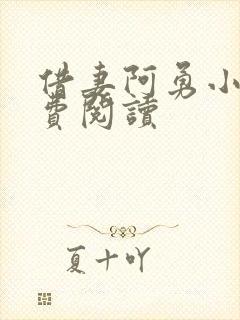 借妻阿勇小
費閱讀
夏十吖